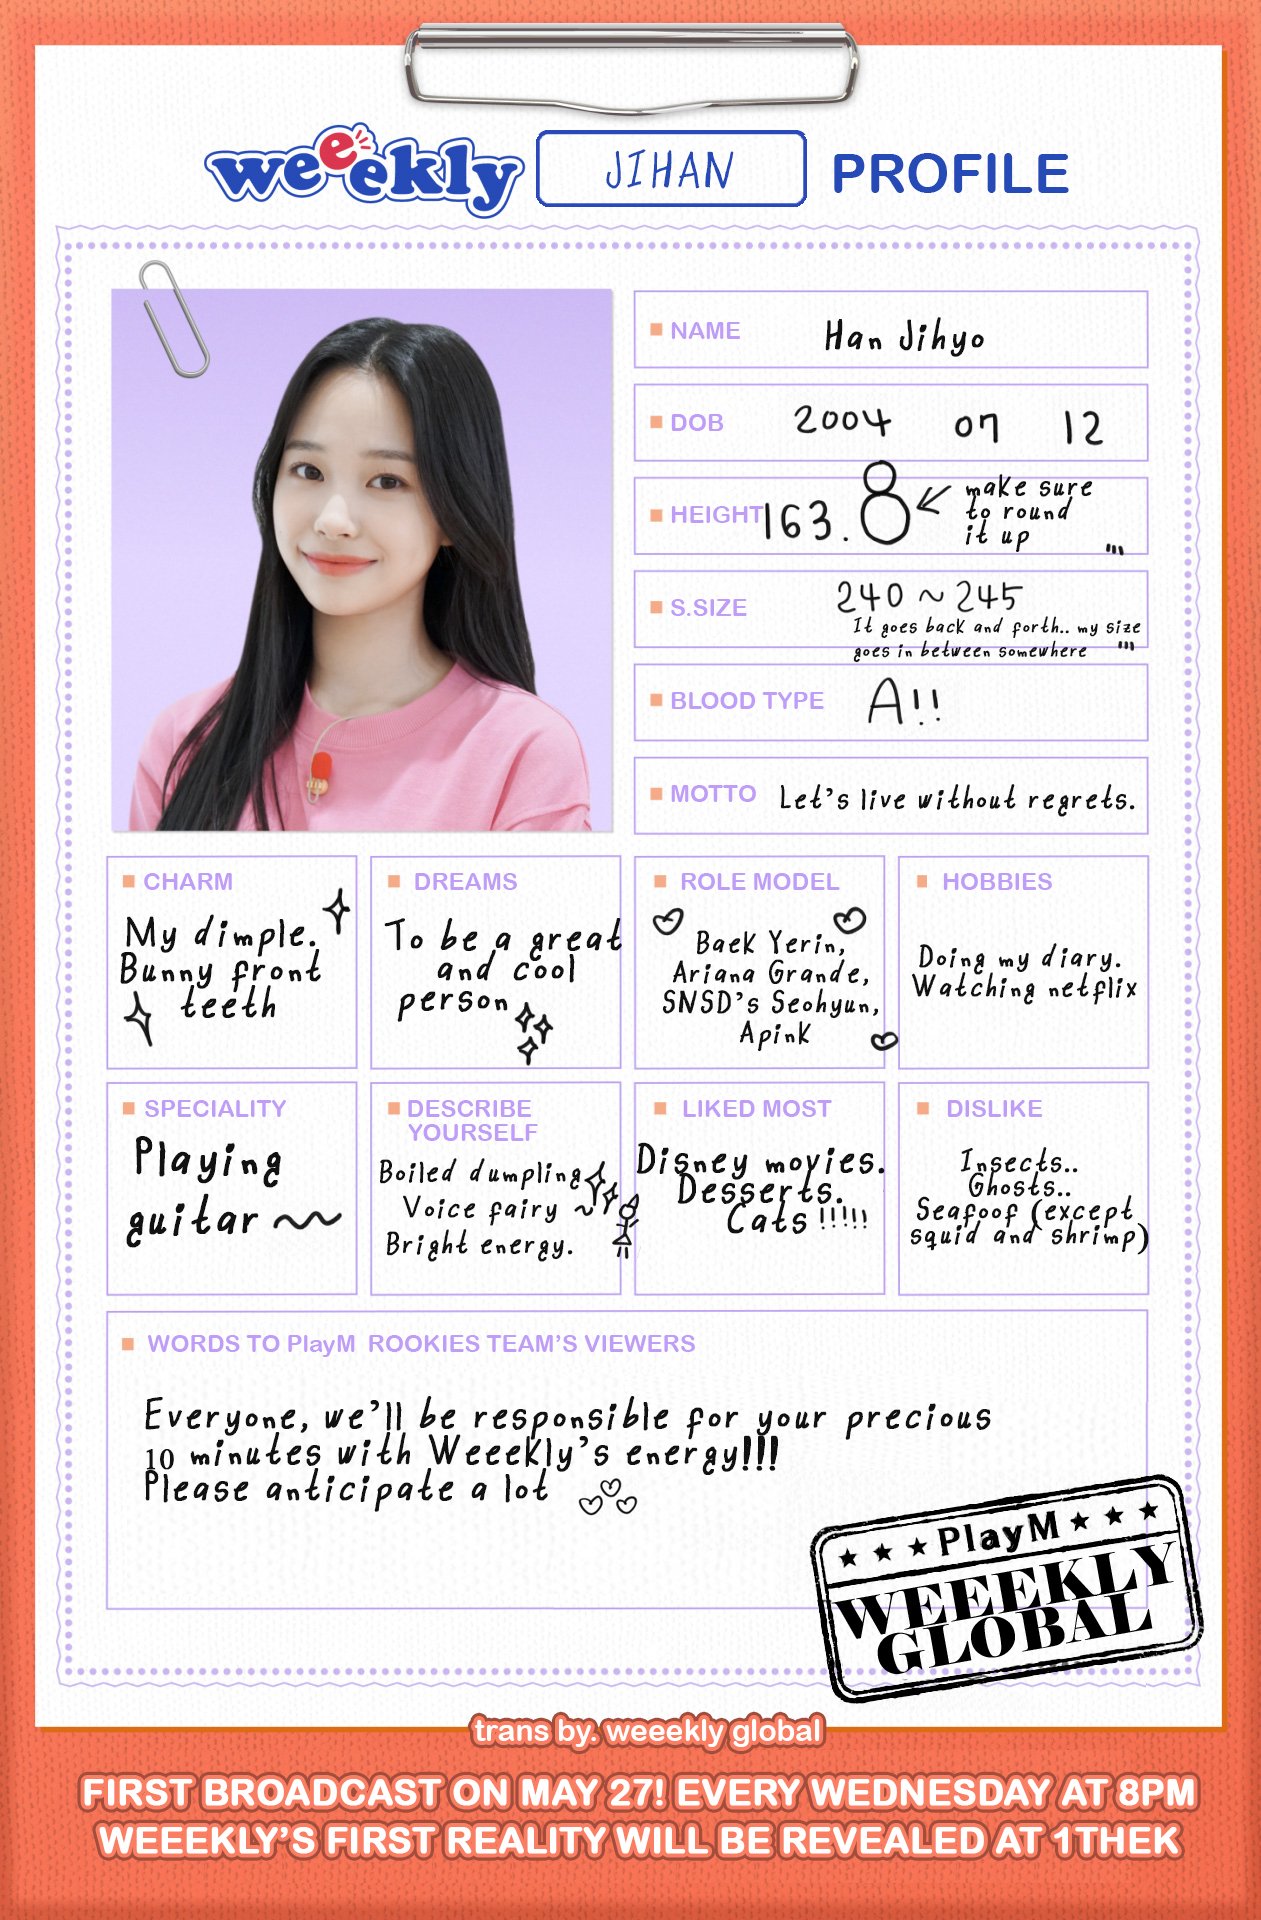 weeekly JIHAN PROFILE
NAME Han Jihyo
DOB 2004 07 12
HEIGHT 163.8 make sure
to round
it up
S.SIZE 240 ~ 245
It goes back and forth.. my size
goes in between somewhere
BLOOD TYPE A!!
MOTTO Let's live without regrets.
CHARM
My dimple.
Bunny front
teeth
DREAMS
To be a great
and cool
person
ROLE MODEL
Baek Yerin,
Ariana Grande,
SNSD's Seohyun,
Apink
HOBBIES
Doing my diary.
Watching netflix
SPECIALITY
Playing
guitar
DESCRIBE
YOURSELF
Boiled dumpling
Voice fairy ~
Bright energy.
LIKED MOST
Disney movies.
Desserts.
Cats !!!!!
DISLIKE
Insects..
Ghosts..
Seafoof (except
squid and shrimp)
WORDS TO PlayM ROOKIES TEAM'S VIEWERS
Everyone, we'll be responsible for your precious
10 minutes with Weeekly's energy!!!
Please anticipate a lot
PlayM
WEEEKLY
GLOBAL
trans by. weeekly global
FIRST BROADCAST ON MAY 27! EVERY WEDNESDAY AT 8PM
WEEEKLY'S FIRST REALITY WILL BE REVEALED AT 1THEK